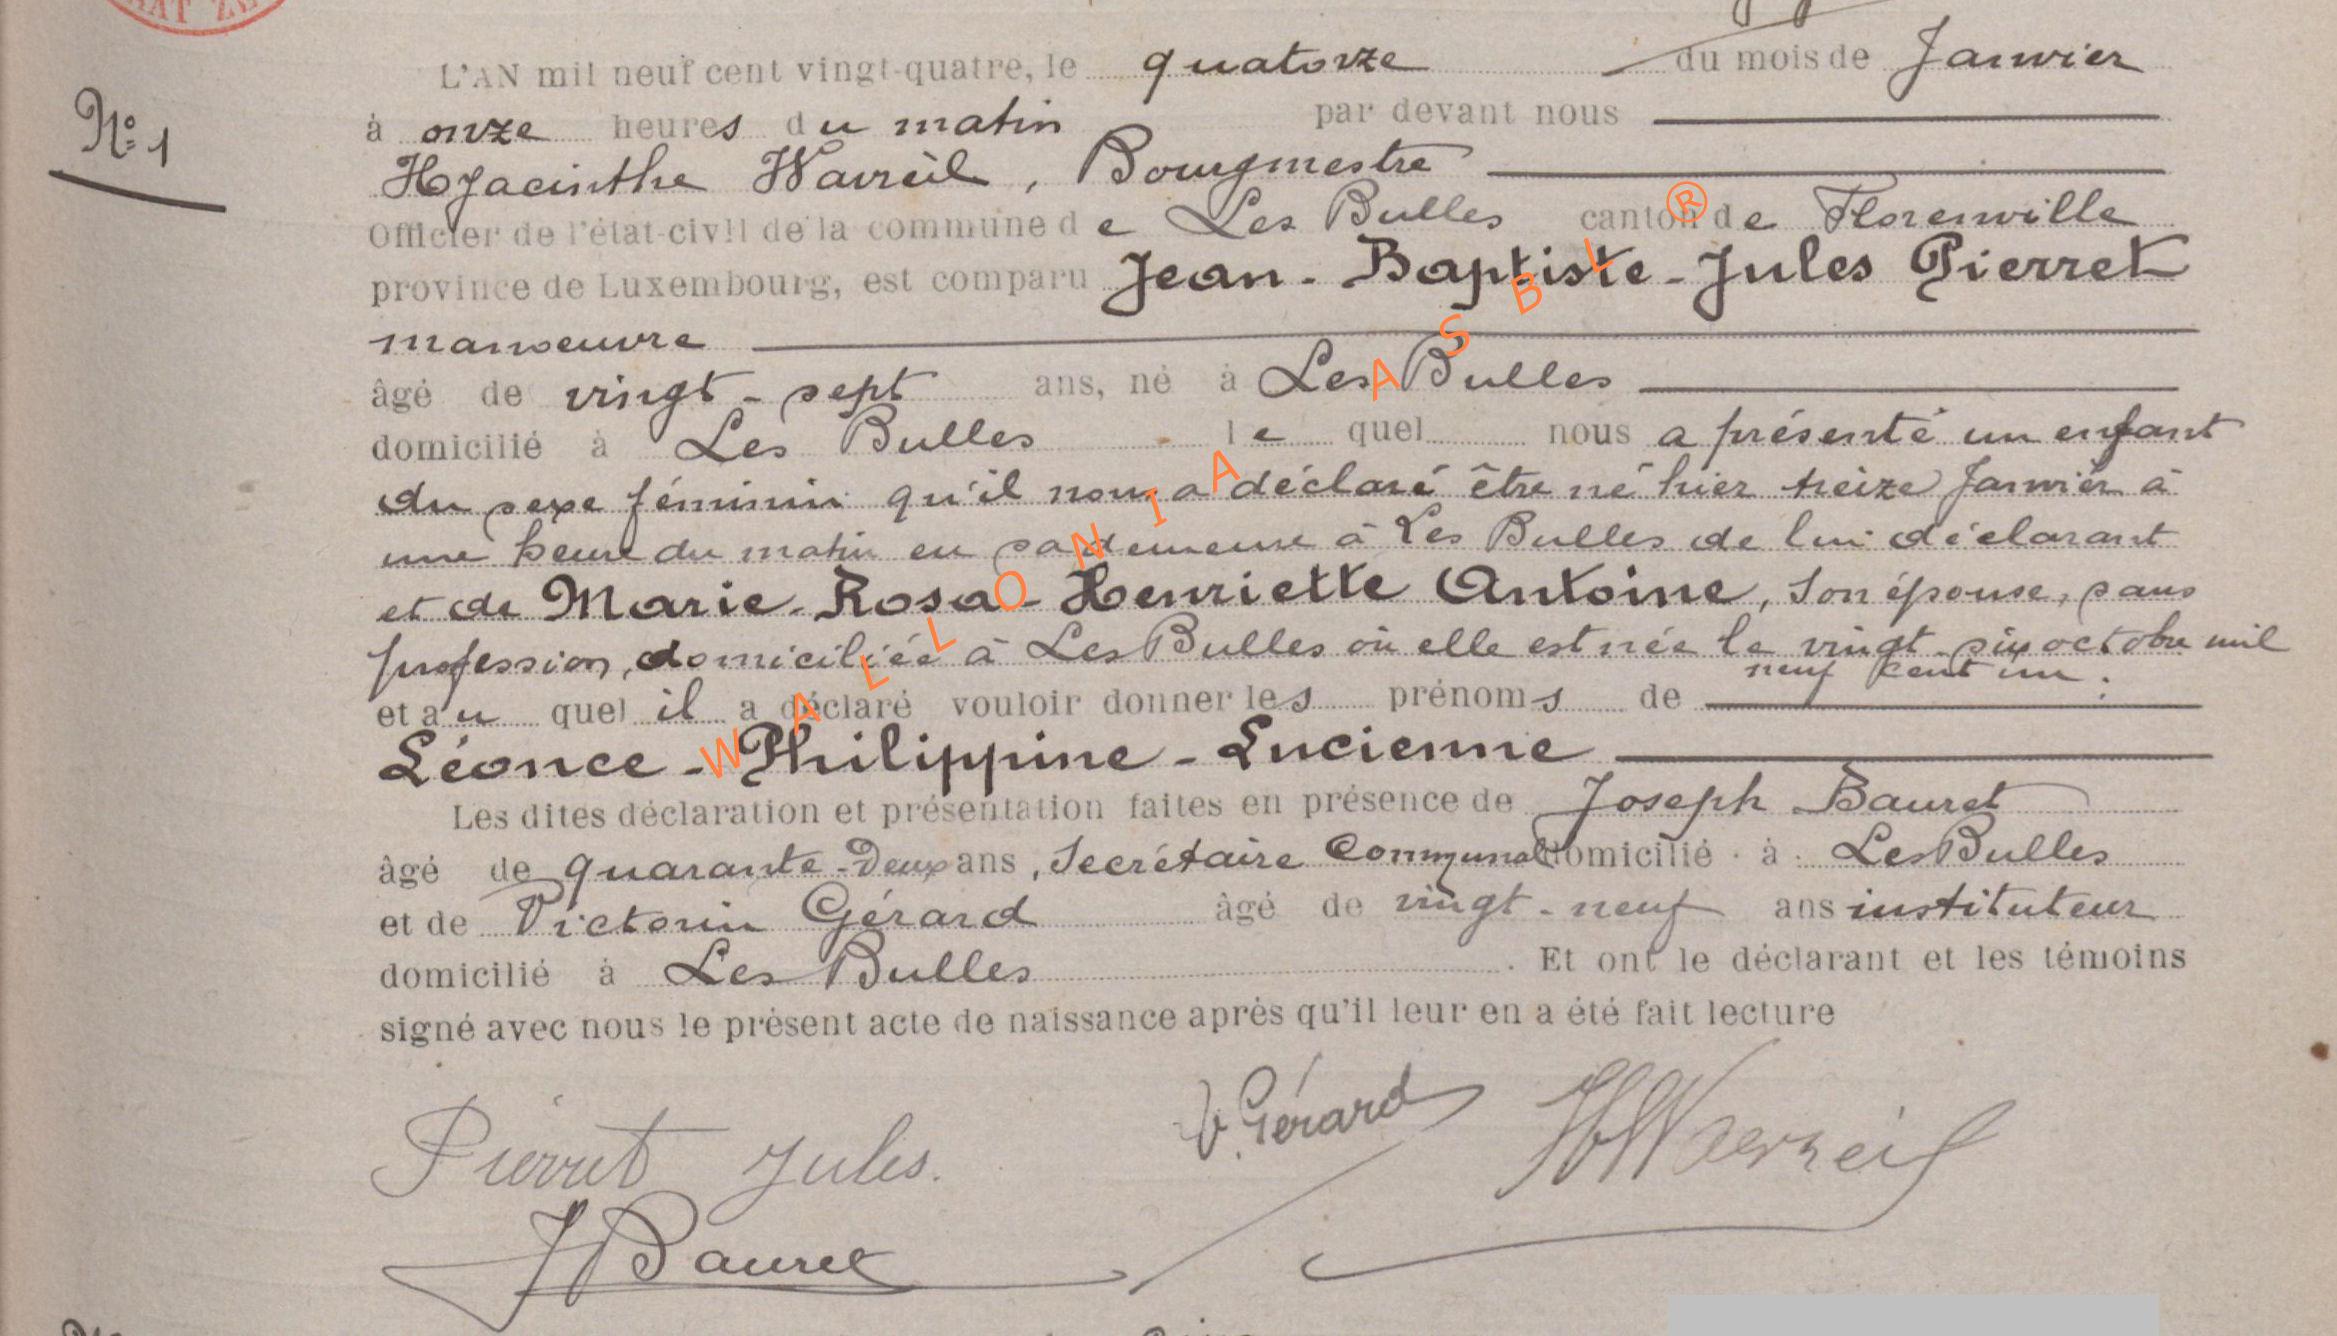 L'AN mil neuf cent vingt-quatre, le quatorze du mois de Janvier
N° 1
à onze heures du matin par devant nous
Hyacinthe Wavreil, Bourgmestre
Officier de l'état-civil de la commune de Les Bulles canton de Florenville
province de Luxembourg, est comparu Jean-Baptiste-Jules Pierret
manoeuvre
âgé de vingt-sept ans, né à Les Bulles
domicilié à Les Bulles lequel nous a présenté un enfant
du sexe féminin qu'il nous a déclaré être né hier treize Janvier à
une heure du matin en sa demeure à Les Bulles de lui déclarant
et de Marie-Rosa-Henriette Antoine, son épouse, sans
profession, domiciliée à Les Bulles où elle est née le vingt-six octobre mil
neuf cent un.
et au quel il a déclaré vouloir donner les prénoms de
Léonce-Philippine-Lucienne
Les dites déclaration et présentation faites en présence de Joseph Bauret
âgé de quarante-deux ans, Secrétaire Communal domicilié à Les Bulles
et de Victorin Gérard âgé de vingt-neuf ans instituteur
domicilié à Les Bulles. Et ont le déclarant et les témoins
signé avec nous le présent acte de naissance après qu'il leur en a été fait lecture
V. Gérard
Pierret Jules.
J Bauret
WALLONIA ASBL ®